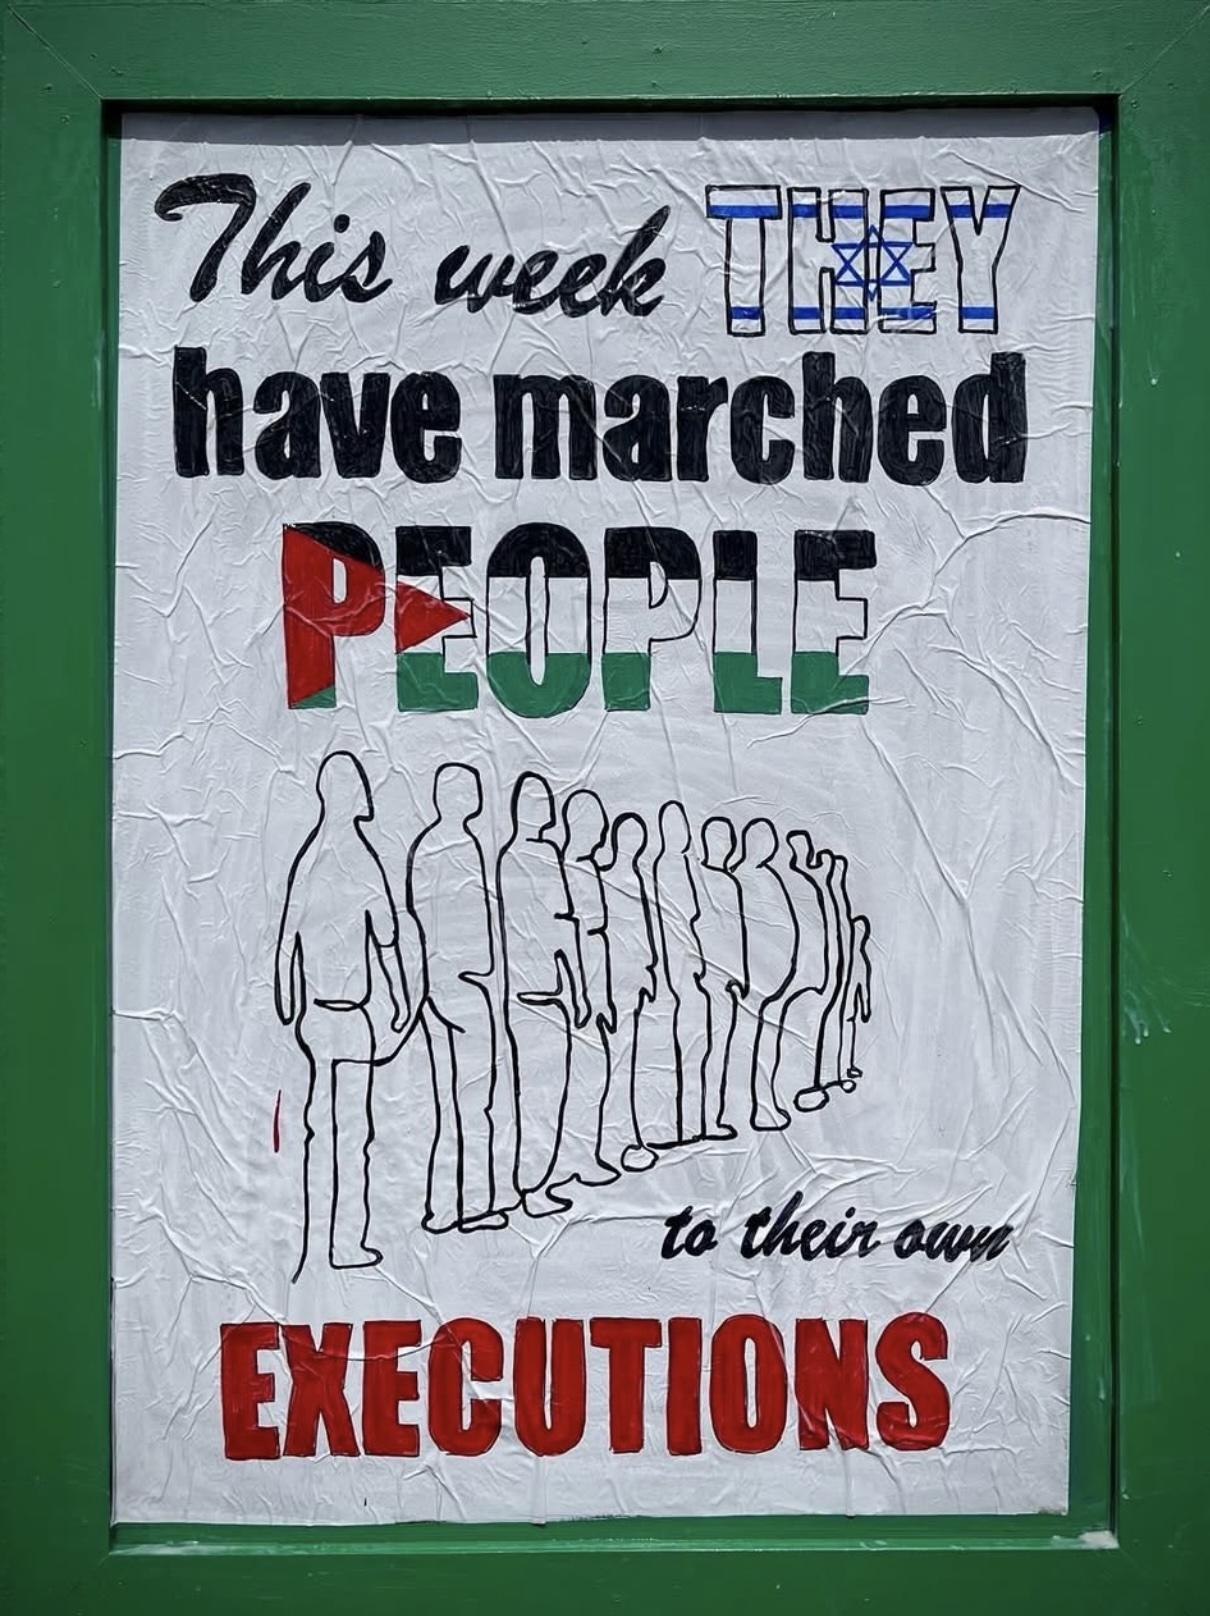 This week THEY
have marched
PEOPLE
to their own
EXECUTIONS